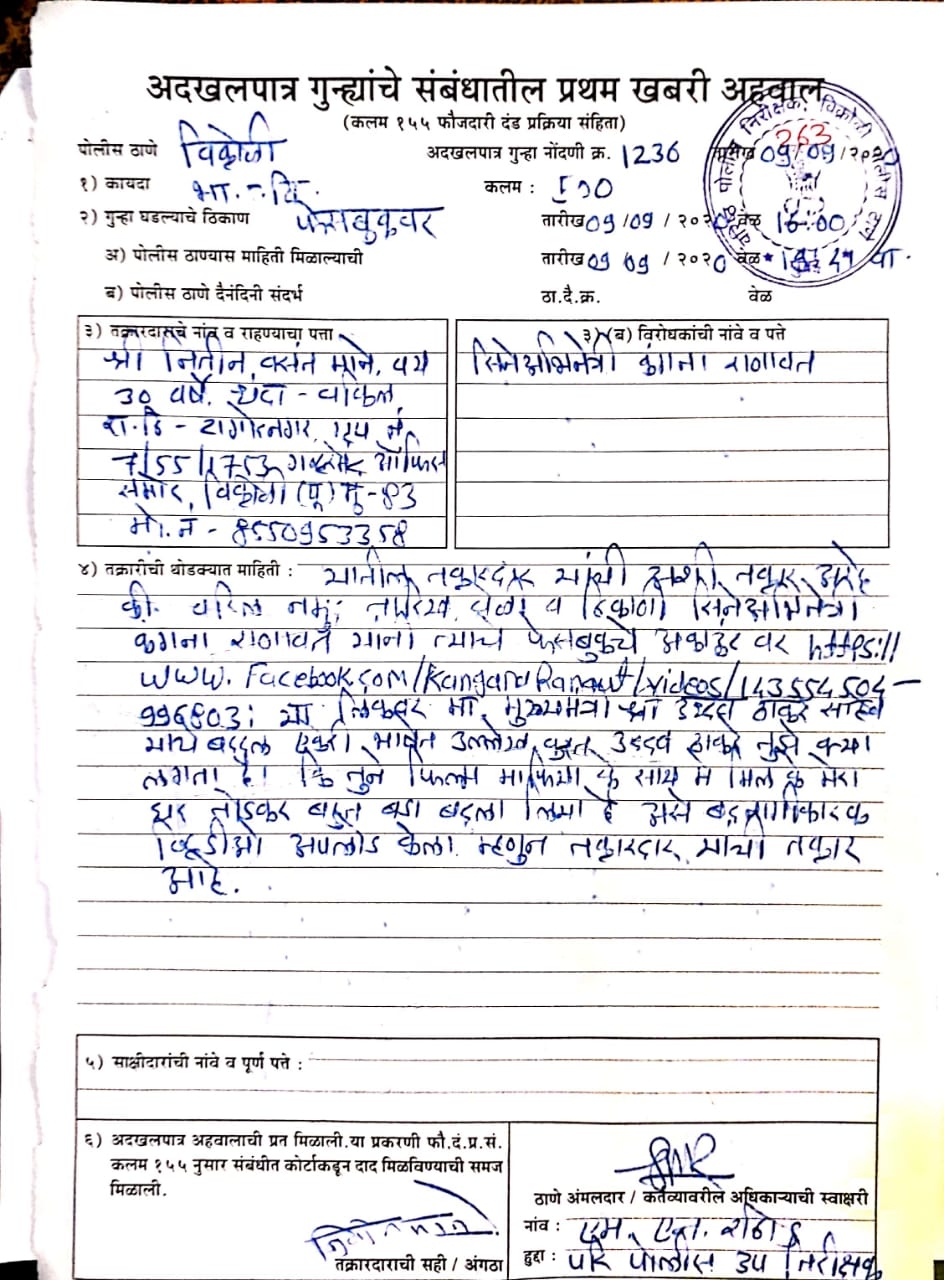 अदखलपात्र गुन्ह्यांचे संबंधातील प्रथम खबरी अहवाल
(कलम १५५ फौजदारी दंड प्रक्रिया संहिता)
पोलीस ठाणे विक्रोळी अदखलपात्र गुन्हा नोंदणी क्र. 1236 तारीख 09/09/२०२०
263
१) कायदा भा.द.वि. कलम : 500
२) गुन्हा घडल्याचे ठिकाण फेसबुकवर तारीख 09/09/२०२० वेळ 16:00
अ) पोलीस ठाण्यास माहिती मिळाल्याची तारीख 09 09 / २०२० वेळ वा.
ब) पोलीस ठाणे दैनंदिनी संदर्भ ठा.दै.क्र. वेळ
३) तक्रारदाराचे नांव व राहण्याचा पत्ता
श्री नितीन वसंत माने, वय
30 वर्षे, धंदा - वकिल,
रा.ठि - टागोरनगर,
7/55/1753 ऑफिस
समोर, विक्रोळी (पू) मु-83
मो.नं - 8550953358
३) (ब) विरोधकांची नांवे व पत्ते
सिनेअभिनेत्री कंगना राणावत
४) तक्रारीची थोडक्यात माहिती : यातील तक्रारदार यांची अशी तक्रार आहे
की. वरिल नमुद तारिख वेळी व ठिकाणी सिनेअभिनेत्री
कंगना राणावत यांनी त्यांचे फेसबुकचे अकाउंट वर https://
www.Facebook.com/KanganaRanaut/videos/143554504-
996803: या लिंकवर मा. मुख्यमंत्री श्री उध्दव ठाकरे साहेब
यांचे बद्दल एकेरी भाषेत उल्लेख करुन उद्दव ठाकरे तुझे क्या
लगता है। कि तुने फिल्म माफिया के साथ मे मिल के मेरा
घर तोडकर बहुत बडा बदला लिया है असे बदनामीकारक
व्हिडीओ अपलोड केला म्हणुन तक्रारदार यांची तक्रार
आहे.
५) साक्षीदारांची नांवे व पूर्ण पत्ते :
६) अदखलपात्र अहवालाची प्रत मिळाली.या प्रकरणी फौ.दं.प्र.सं.
कलम १५५ नुसार संबंधीत कोर्टाकडून दाद मिळविण्याची समज
मिळाली.
तक्रारदाराची सही / अंगठा
ठाणे अंमलदार / कर्तव्यावरीले अधिकाऱ्याची स्वाक्षरी
नांव : एम. एन. राठोड
हुद्दा : परि पोलीस उप निरीक्षक